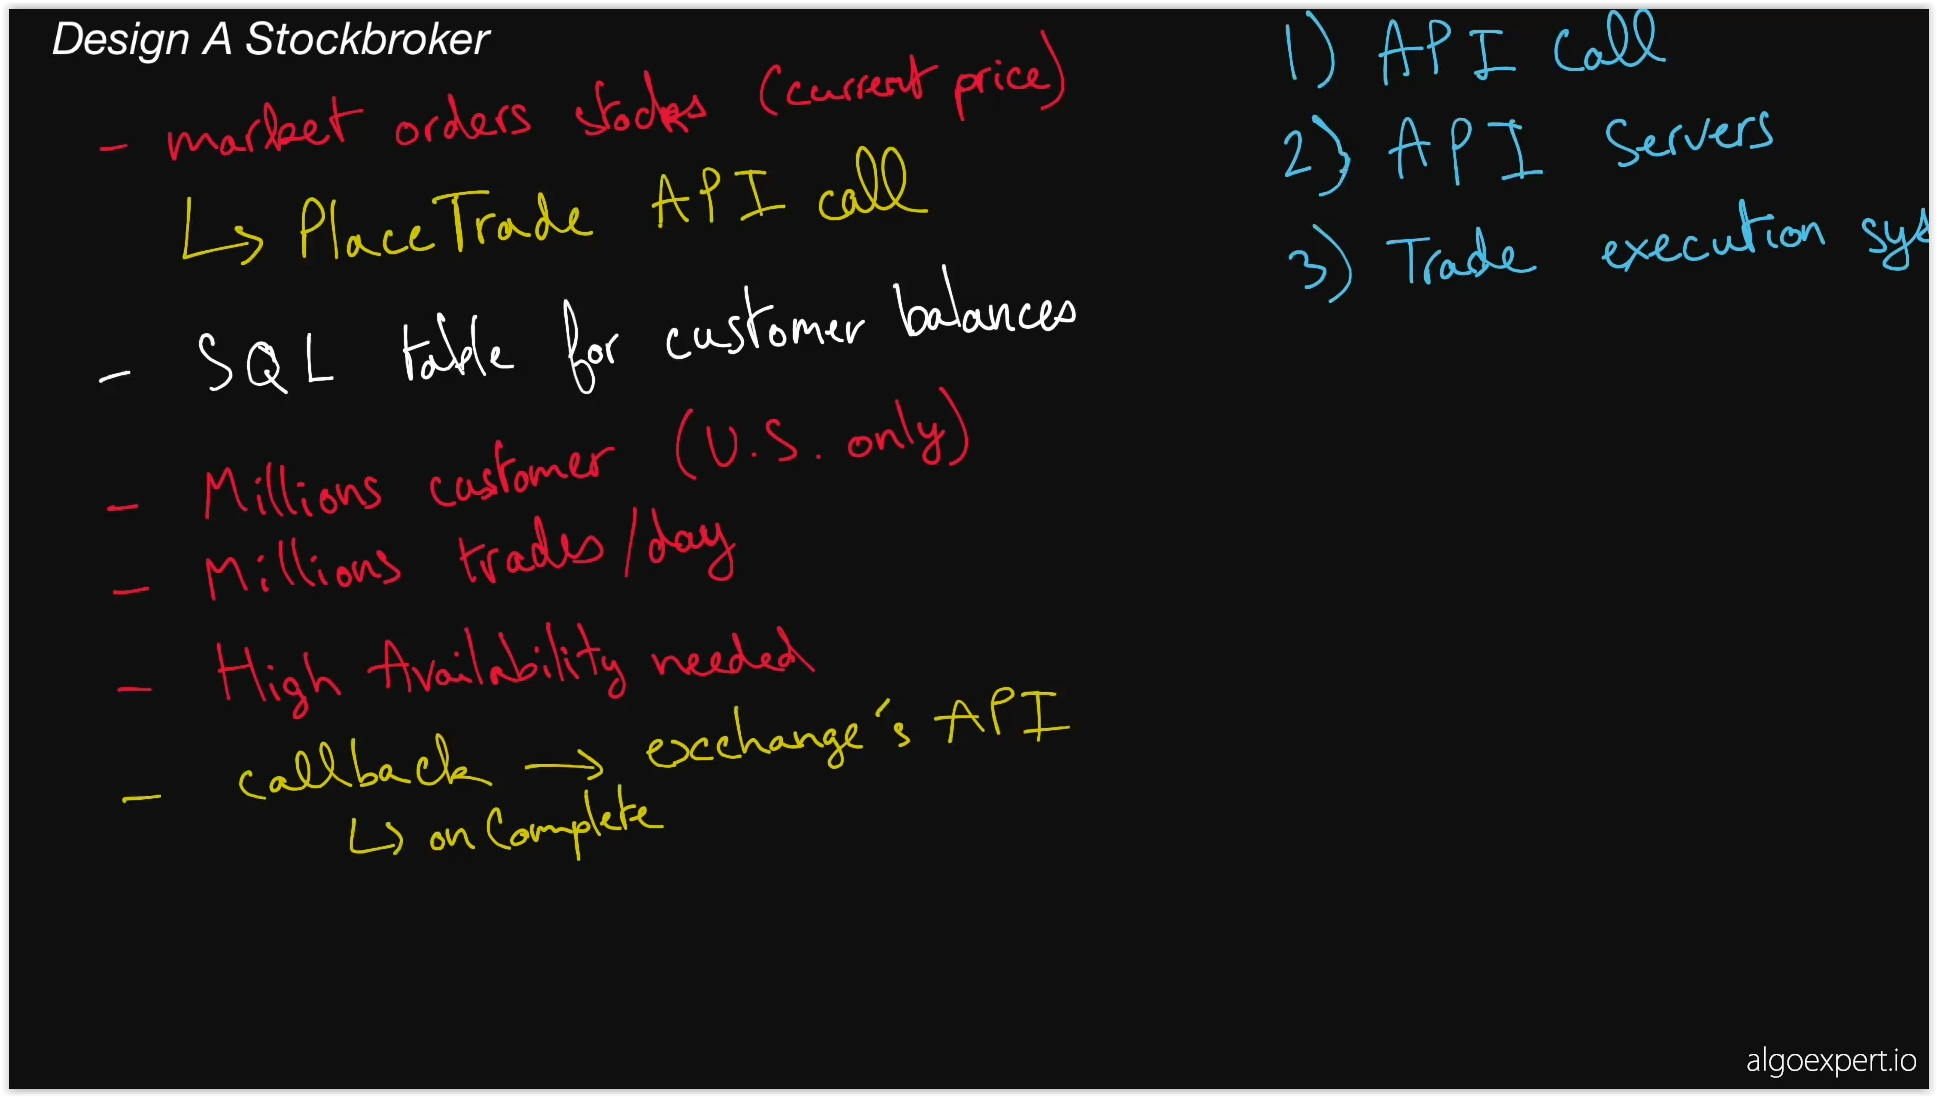 Design A Stockbroker
- market orders stocks (current price)
↳ PlaceTrade API call
- SQL table for customer balances
- Millions customer (U.S. only)
- Millions trades/day
- High Availability needed
- callback → exchange's API
↳ on Complete
1) API Call
2) API Servers
3) Trade execution sys
algoexpert.io